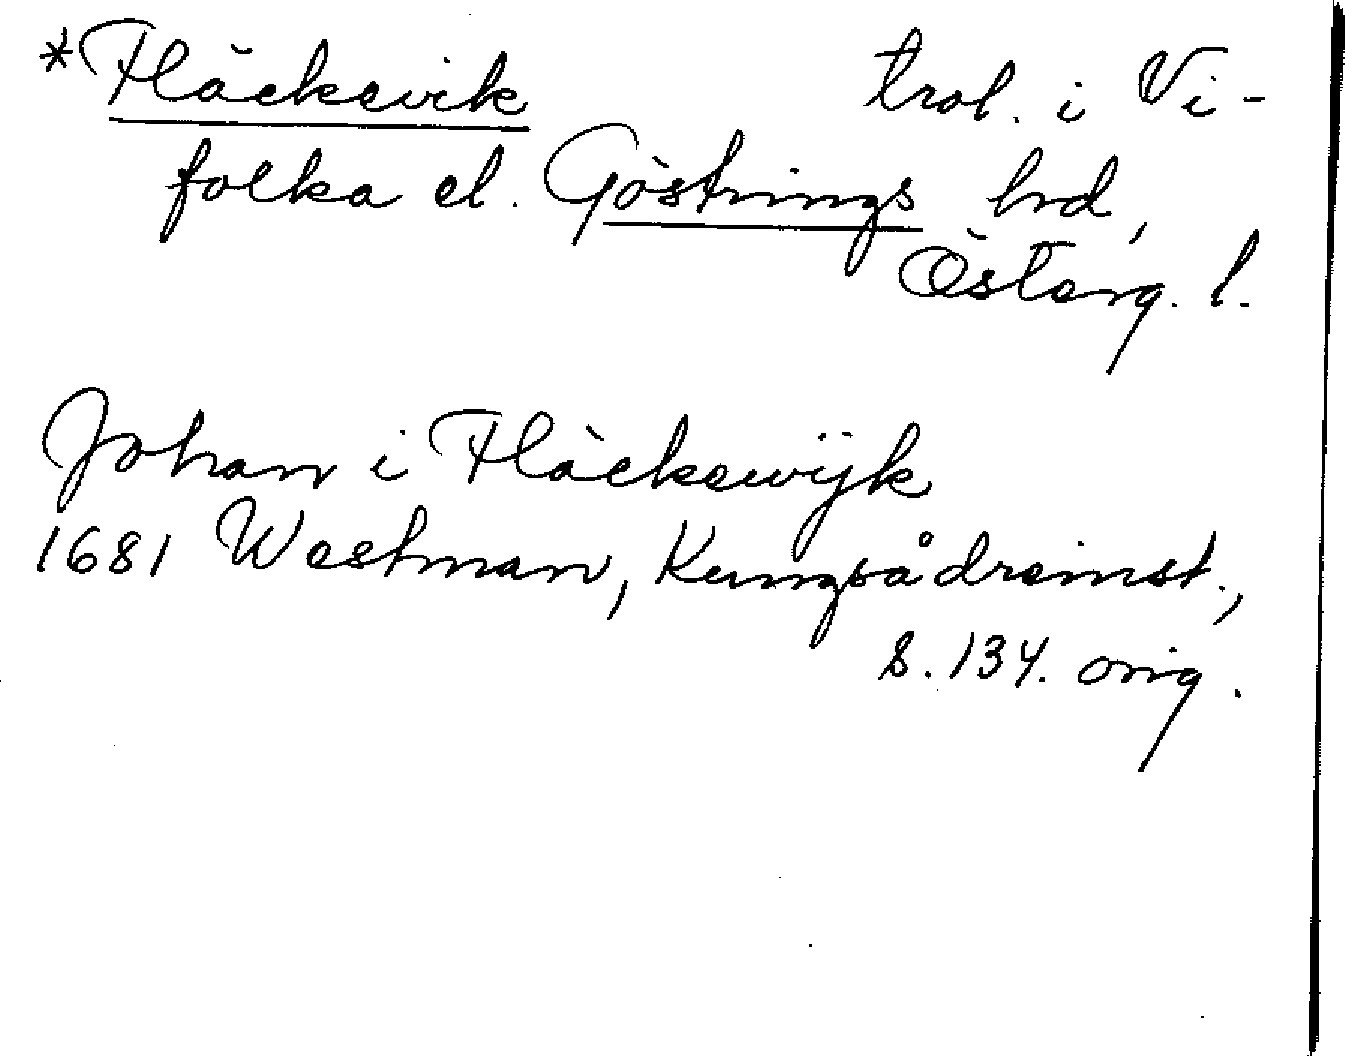 *Fläckevik trol. i Vi-
folka el. Göstrings hrd,
Österg. l.
Johan i Fläckewijk
1681 Westman, Kungsådreinst.,
s. 134. orig.